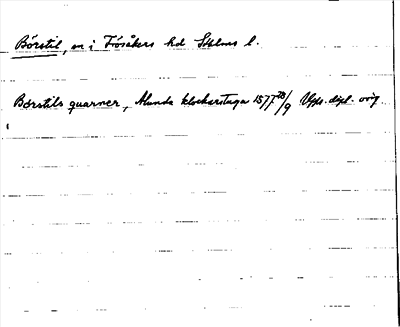 Börstil, sn i Frösåkers hd Sthlms l.
Börstils quarner, Alunda klockarstuga 1577 28/9 Upps. dipl. orig.